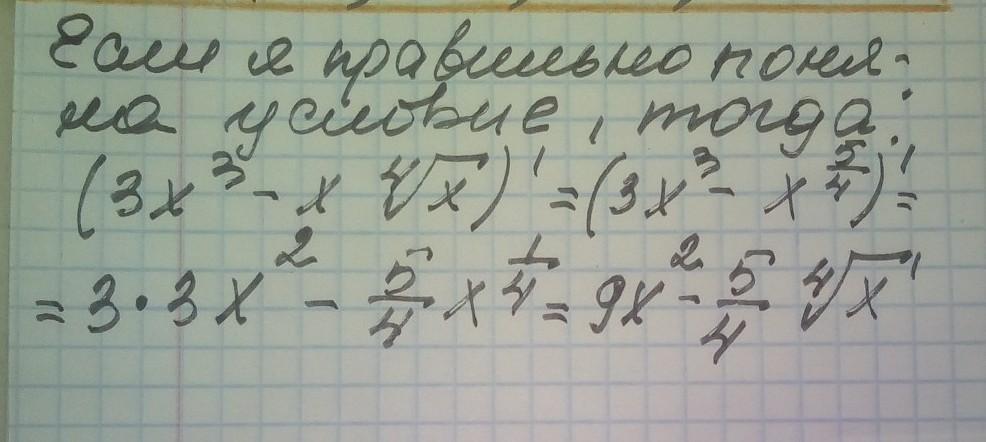 Если я правильно поня-
ла условие, тогда:
(3x³ - x ∜x)' = (3x³ - x^(5/4))' =
= 3·3x² - 5/4 x^(1/4) = 9x² - 5/4 ∜x'